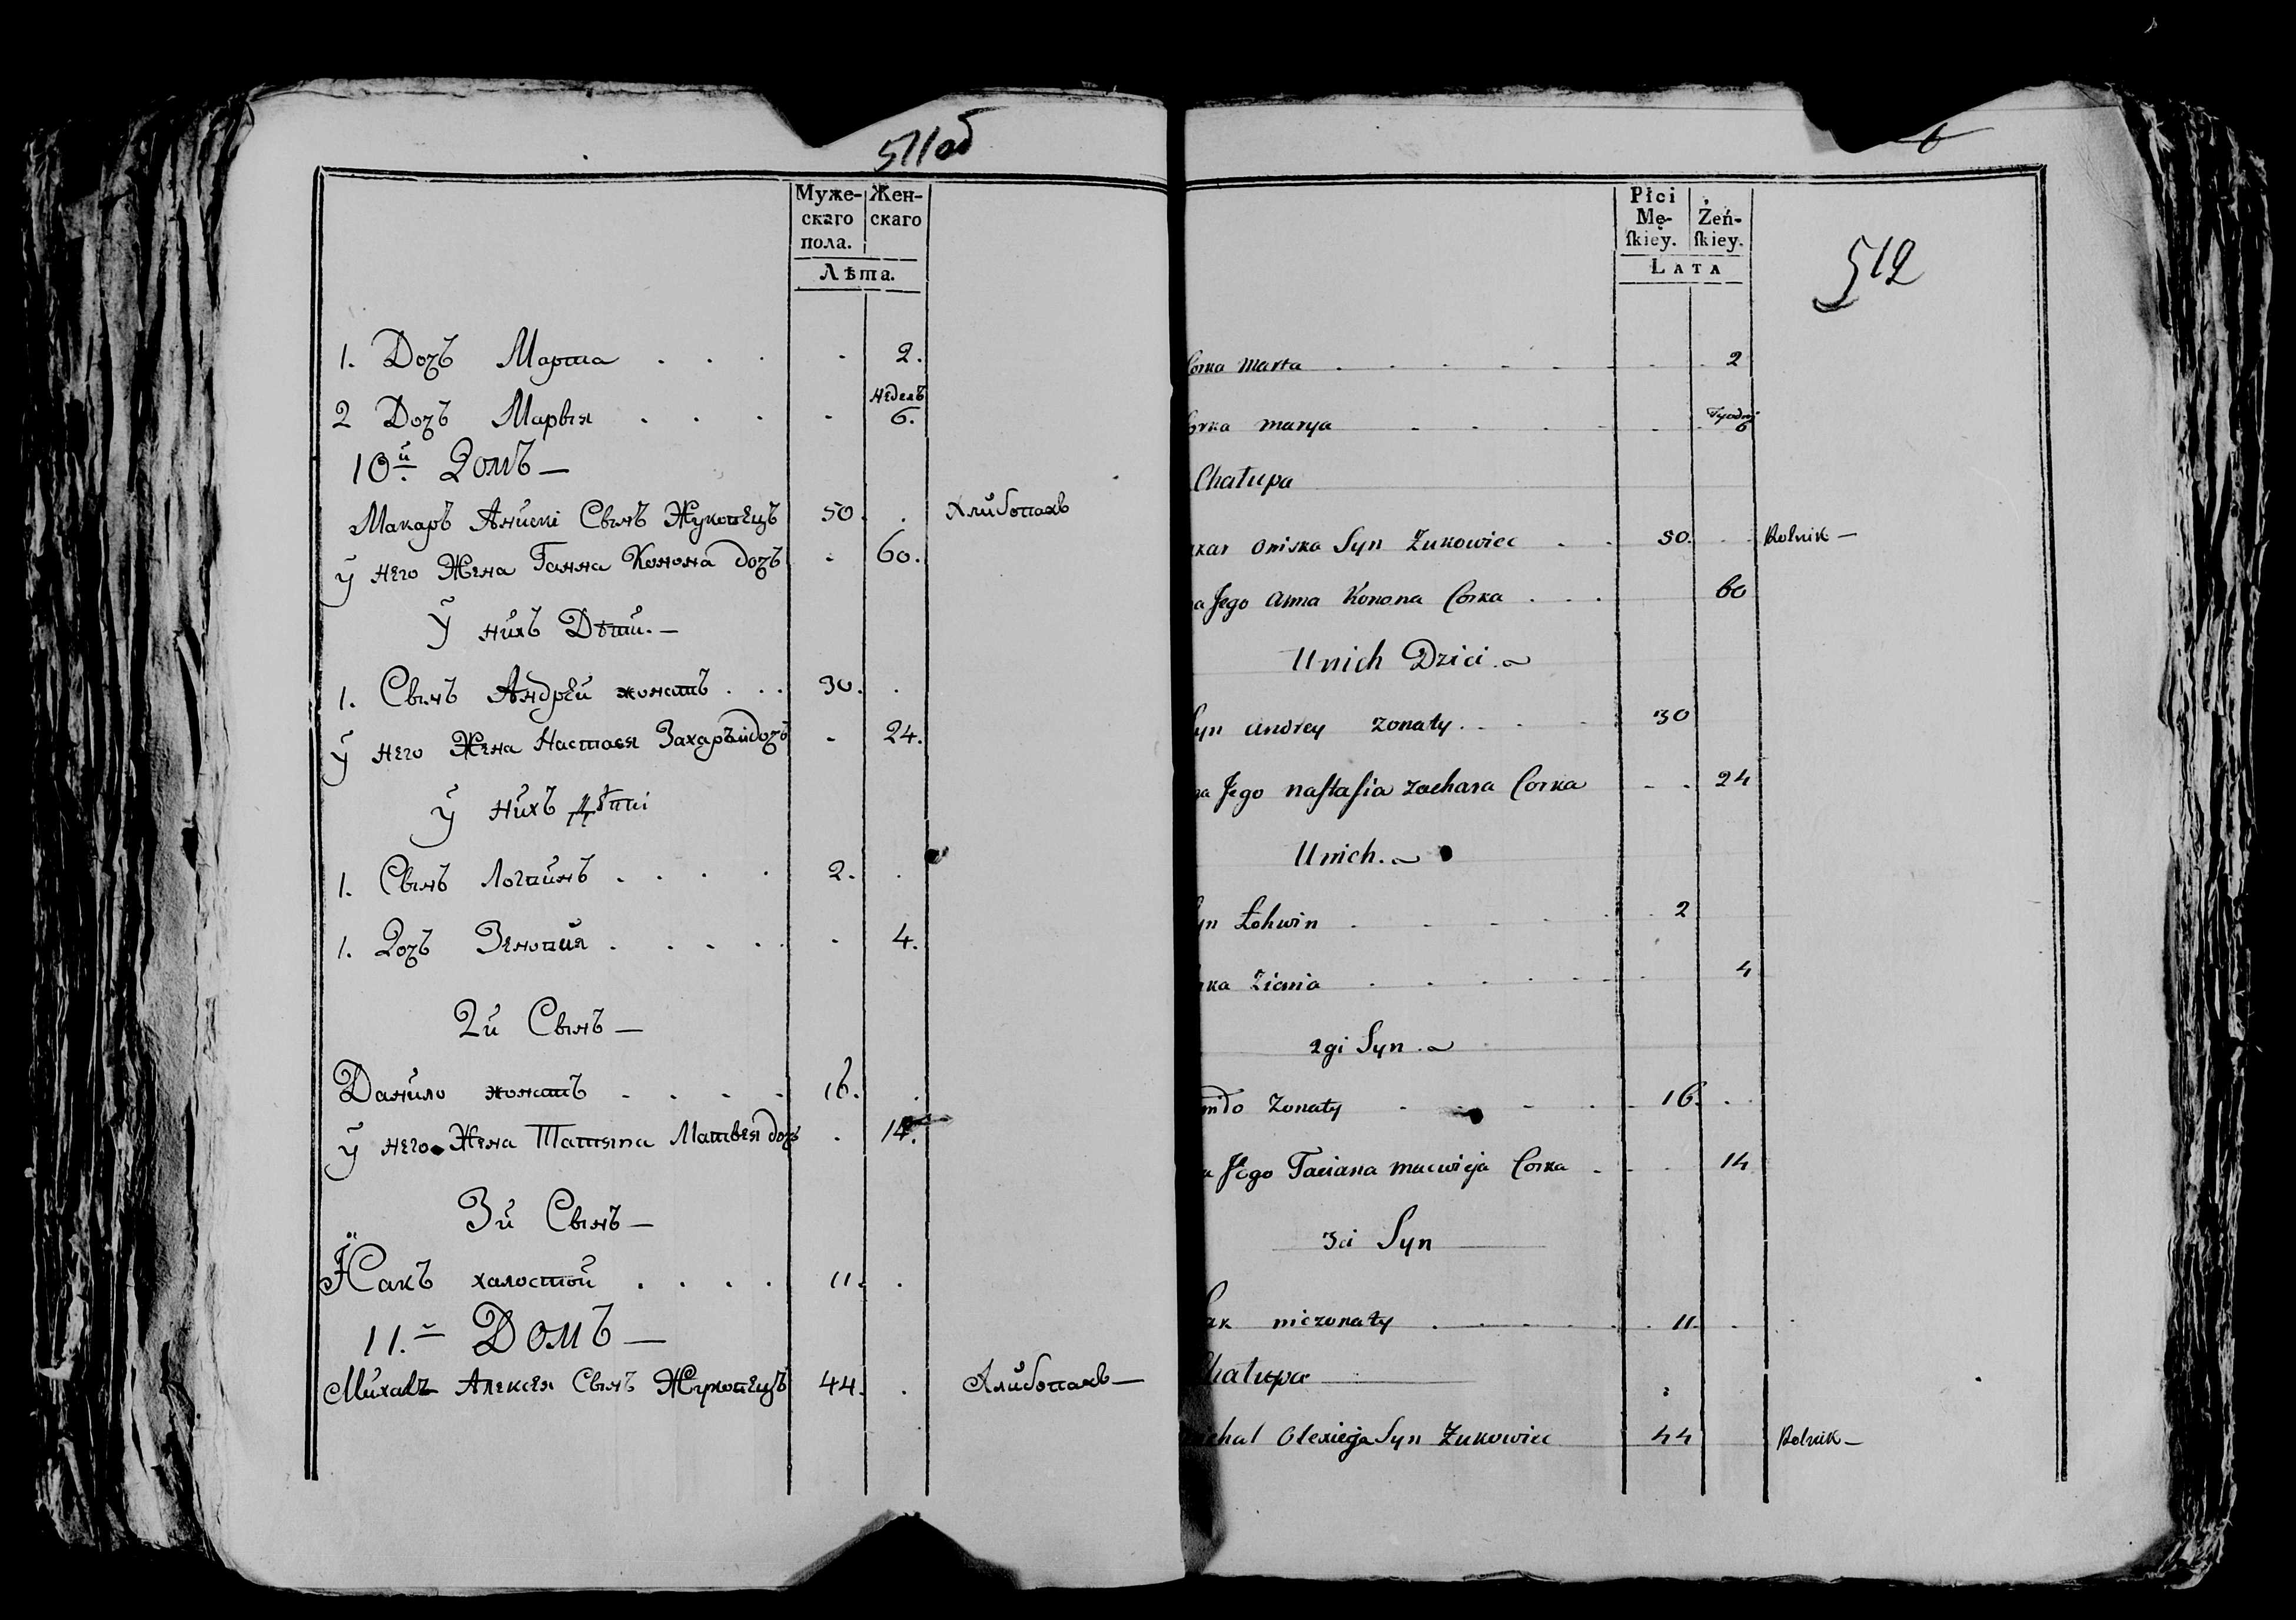 511об
Муже-
скаго
пола.
Жен-
скаго
Лѣта.
1. Дочъ Марта . . . . 2.
неделъ
2 Дочъ Марвя . . . . 6.
10й Домъ —
Макаръ Аниски Сынъ Жуковецъ 50. . Хлибопахъ
у него Жена Ганна Конона дочъ - 60.
У нихъ Дѣти. —
1. Сынъ Андрей жонатъ . . . 30. .
у него Жена Настася Захаръи дочъ - 24.
у нихъ Дѣти
1. Сынъ Логвинъ . . . . 2. .
1. Дочъ Зеновия . . . . . - 4.
2й Сынъ —
Данило жонатъ . . . . 16. .
у него Жена Татяна Матвея дочъ . 14.
3й Сынъ —
Исакъ халостой . . . . 11. .
11.- Домъ —
Михалъ Алексея Сынъ Жуковецъ 44. . Хлибопахъ —
Płci
Mę-
ſkiey.
Żeń-
ſkiey.
Lata
512
Corka Marta . . . . . . . 2
Tygodni
orka Marya . . . . . . 6
Chałupa
kar Oniska Syn Zukowiec . . 50. . . Rolnik —
a Jego Anna Konona Corka . . . 60
U nich Dzici.
yn Andrey Zonaty . . . 30
a Jego Naſtaſia Zachara Corka - . 24
U nich.
yn Łohwin . . . . . . 2
ka Zienia . . . . . . 4
2gi Syn.
Zonaty . . . . . 16. . .
a Jego Taciana Macwieja Corka . . . 14
3ci Syn
ak niezonaty . . . . . 11. .
Chałupa
ichał Olexieja Syn Zukowiec 44 Rolnik —